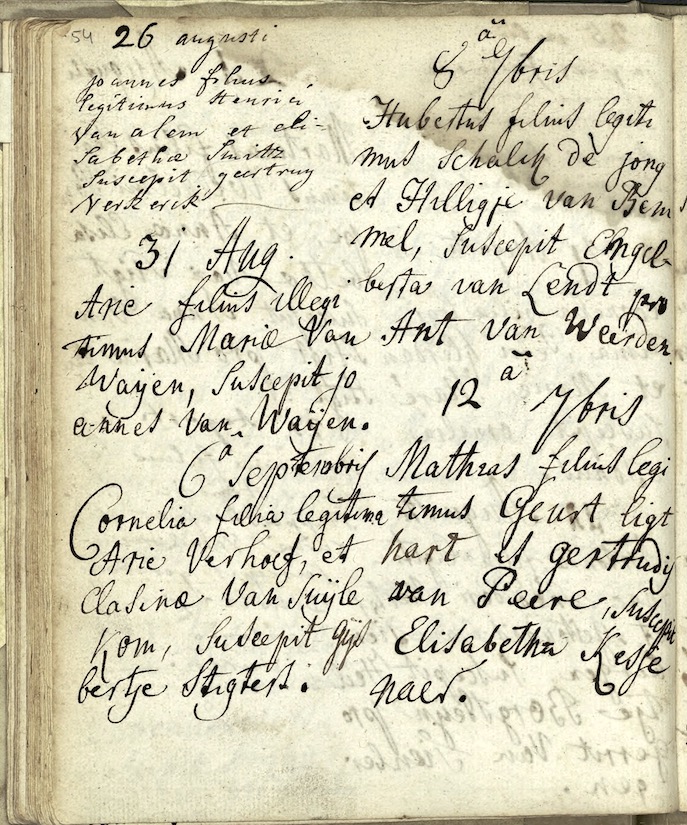 54
26 augusti
joannes filius
legitimus Henrici
Van alem et eli-
sabethæ Smitz
suscepit geertruy
Verkerik
31 Aug.
Arie filius illegi
timus Mariæ Van
Waijen, Suscepit jo
annes Van Waijen.
6ª Septembris
Cornelia filia legitima
Arie Verhoef, et
Clasinæ Van Suijle
Kom, Suscepit Gijs
bertje Stigters.
8ª 7bris
Hubertus filius legiti
mus Schalck de jong
et Hilligje van Bem
mel, Suscepit Engel-
berta van Lendt pro
Ant Van Weerden.
12ª 7bris
Mathias filius legi
timus Geurt ligt
hart et gertrudis
van Peere, Suscepit
Elisabetha Kesse
naer.